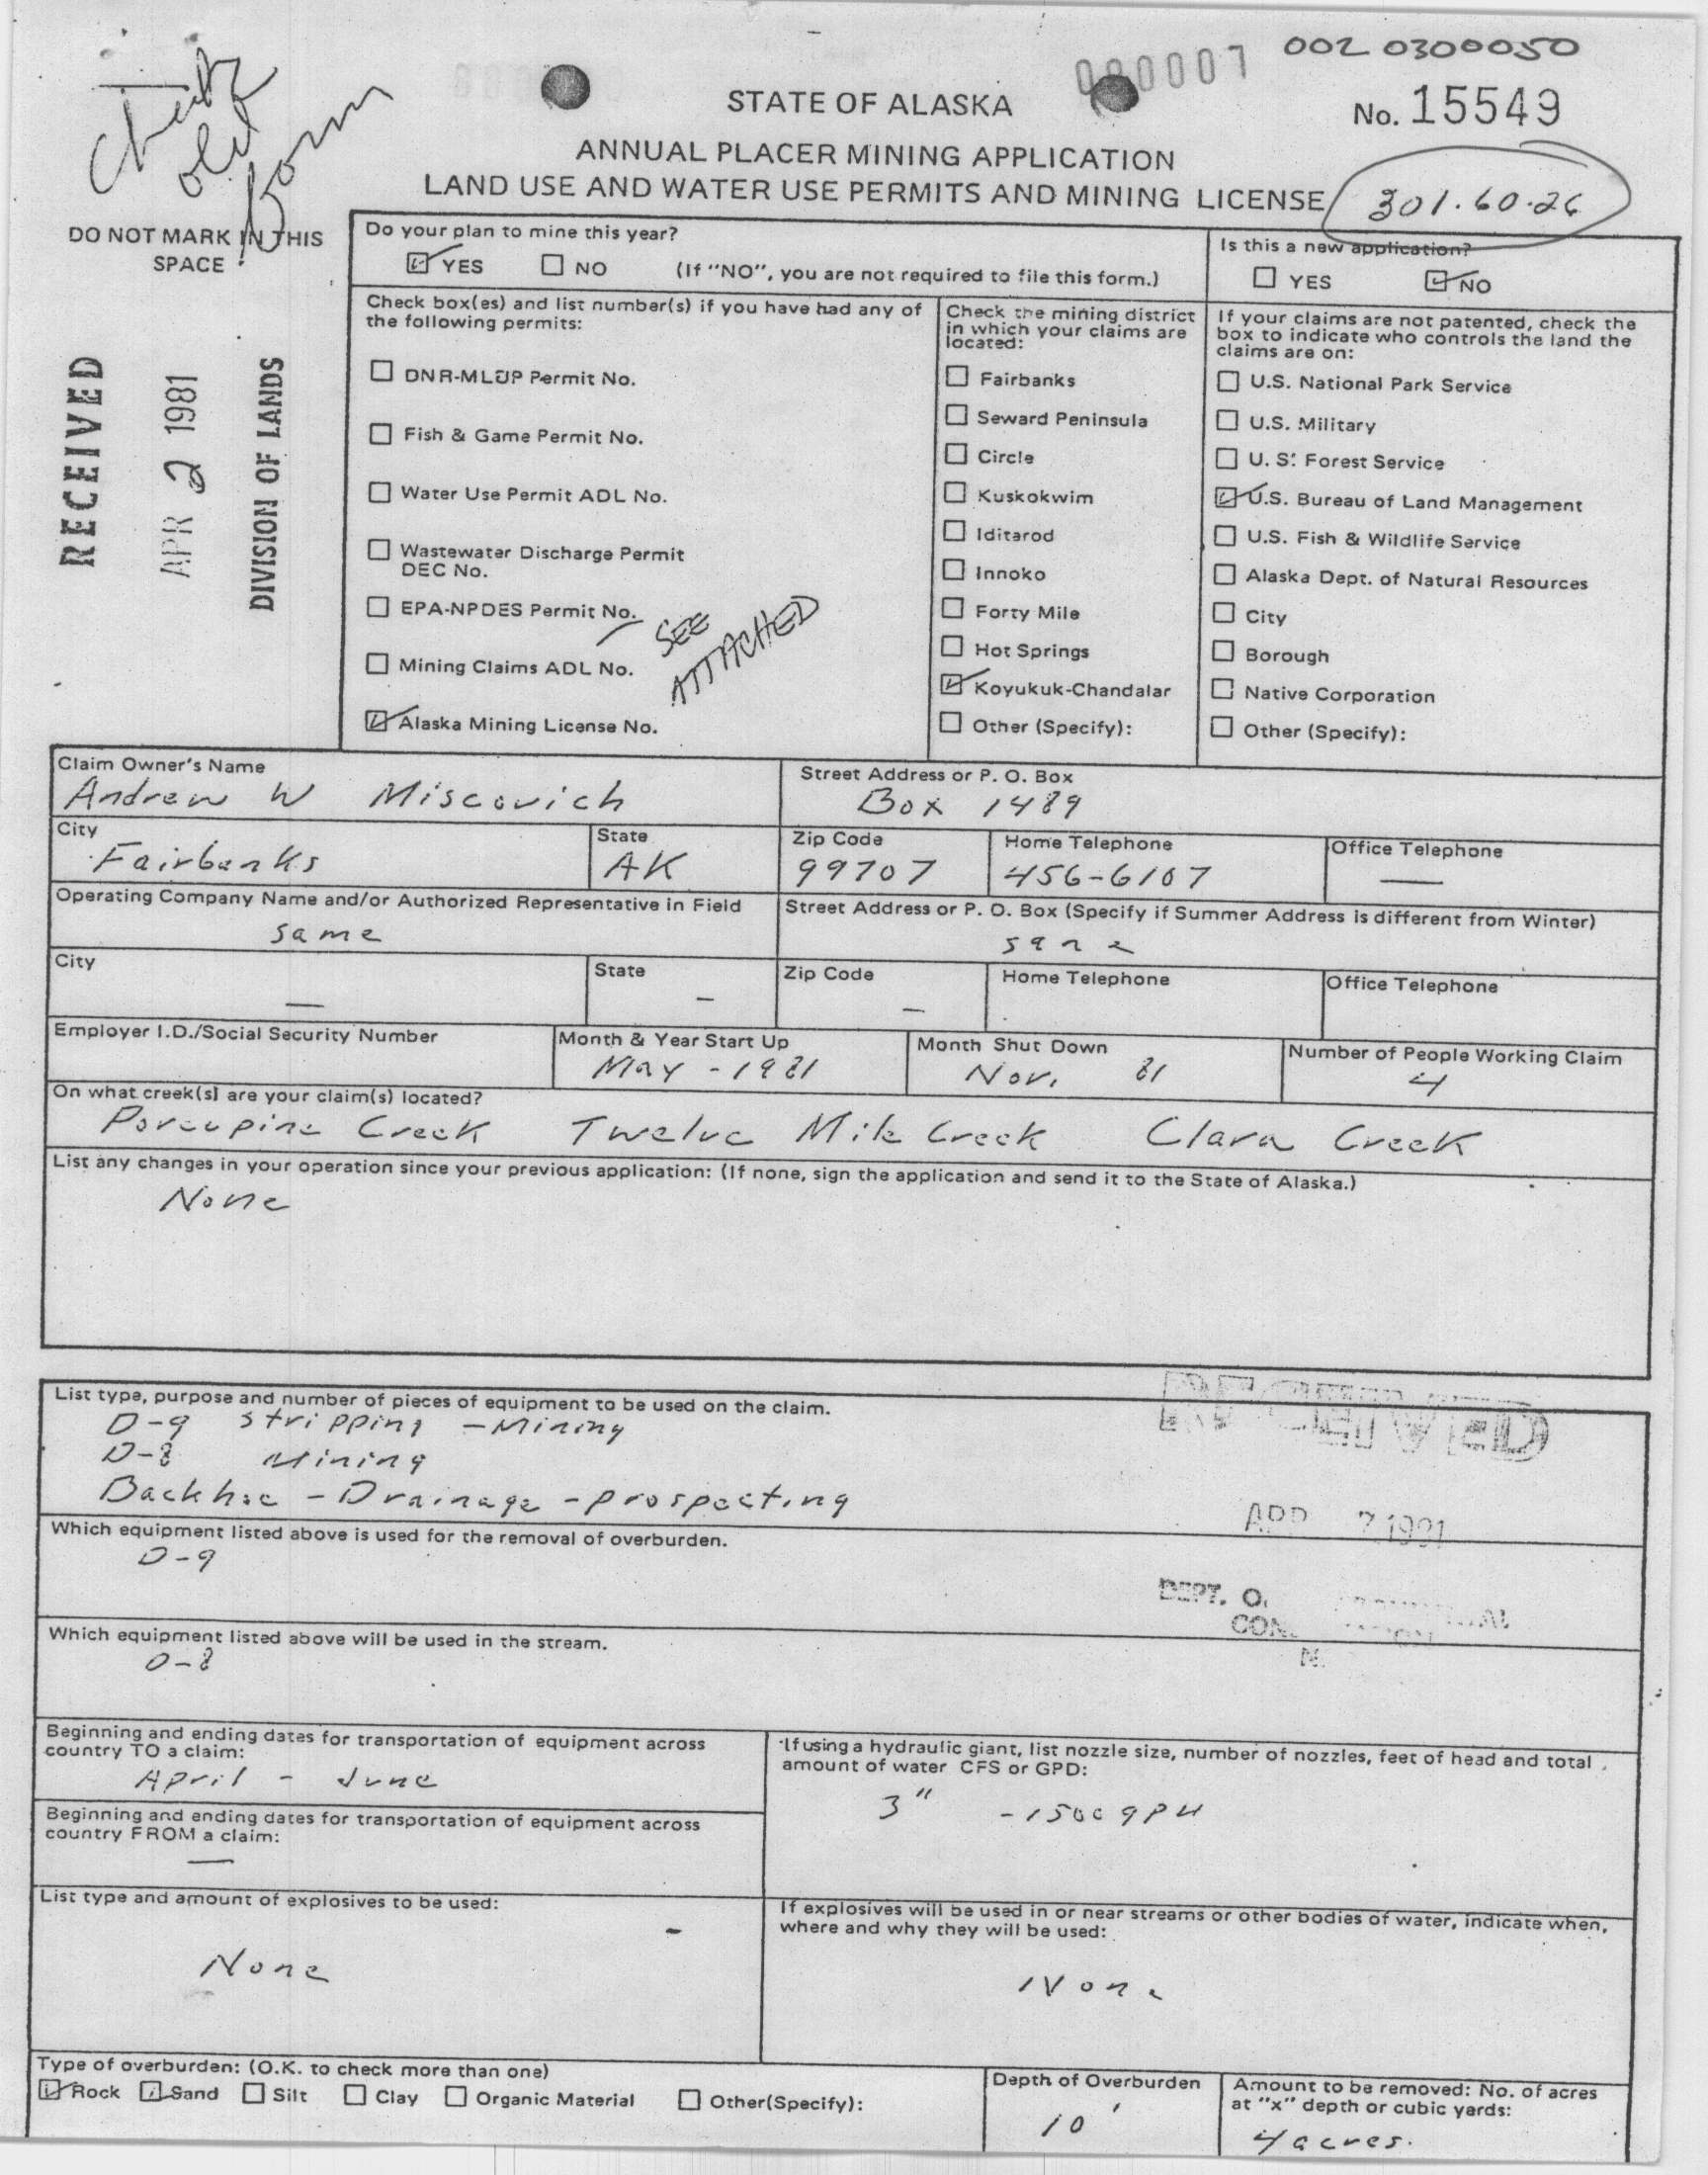 002 0300050
000007
STATE OF ALASKA
No. 15549
ANNUAL PLACER MINING APPLICATION
LAND USE AND WATER USE PERMITS AND MINING LICENSE
301.60.26
Check
old
form
DO NOT MARK IN THIS
SPACE
RECEIVED
APR 2 1981
DIVISION OF LANDS
Do your plan to mine this year?
YES NO (If "NO", you are not required to file this form.)
Is this a new application?
YES NO
Check box(es) and list number(s) if you have had any of
the following permits:
DNR-MLUP Permit No.
Fish & Game Permit No.
Water Use Permit ADL No.
Wastewater Discharge Permit
DEC No.
EPA-NPDES Permit No.
Mining Claims ADL No.
Alaska Mining License No.
SEE
ATTACHED
Check the mining district
in which your claims are
located:
Fairbanks
Seward Peninsula
Circle
Kuskokwim
Iditarod
Innoko
Forty Mile
Hot Springs
Koyukuk-Chandalar
Other (Specify):
If your claims are not patented, check the
box to indicate who controls the land the
claims are on:
U.S. National Park Service
U.S. Military
U. S. Forest Service
U.S. Bureau of Land Management
U.S. Fish & Wildlife Service
Alaska Dept. of Natural Resources
City
Borough
Native Corporation
Other (Specify):
Claim Owner's Name
Andrew W Miscovich
Street Address or P. O. Box
Box 1489
City
Fairbanks
State
AK
Zip Code
99707
Home Telephone
456-6107
Office Telephone
—
Operating Company Name and/or Authorized Representative in Field
same
Street Address or P. O. Box (Specify if Summer Address is different from Winter)
same
City
—
State
—
Zip Code
—
Home Telephone
Office Telephone
Employer I.D./Social Security Number
Month & Year Start Up
May - 1981
Month Shut Down
Nov. 81
Number of People Working Claim
4
On what creek(s) are your claim(s) located?
Porcupine Creek Twelve Mile Creek Clara Creek
List any changes in your operation since your previous application: (If none, sign the application and send it to the State of Alaska.)
None
List type, purpose and number of pieces of equipment to be used on the claim.
D-9 stripping - Mining
D-8 Mining
Backhoe - Drainage - prospecting
RECEIVED
APR 7 1981
DEPT. O
CON
N.
Which equipment listed above is used for the removal of overburden.
D-9
Which equipment listed above will be used in the stream.
D-8
Beginning and ending dates for transportation of equipment across
country TO a claim:
April - June
Beginning and ending dates for transportation of equipment across
country FROM a claim:
—
If using a hydraulic giant, list nozzle size, number of nozzles, feet of head and total
amount of water CFS or GPD:
3" - 1500 gpm
List type and amount of explosives to be used:
None
If explosives will be used in or near streams or other bodies of water, indicate when,
where and why they will be used:
None
Type of overburden: (O.K. to check more than one)
Rock Sand Silt Clay Organic Material Other(Specify):
Depth of Overburden
10'
Amount to be removed: No. of acres
at "x" depth or cubic yards:
4 acres.